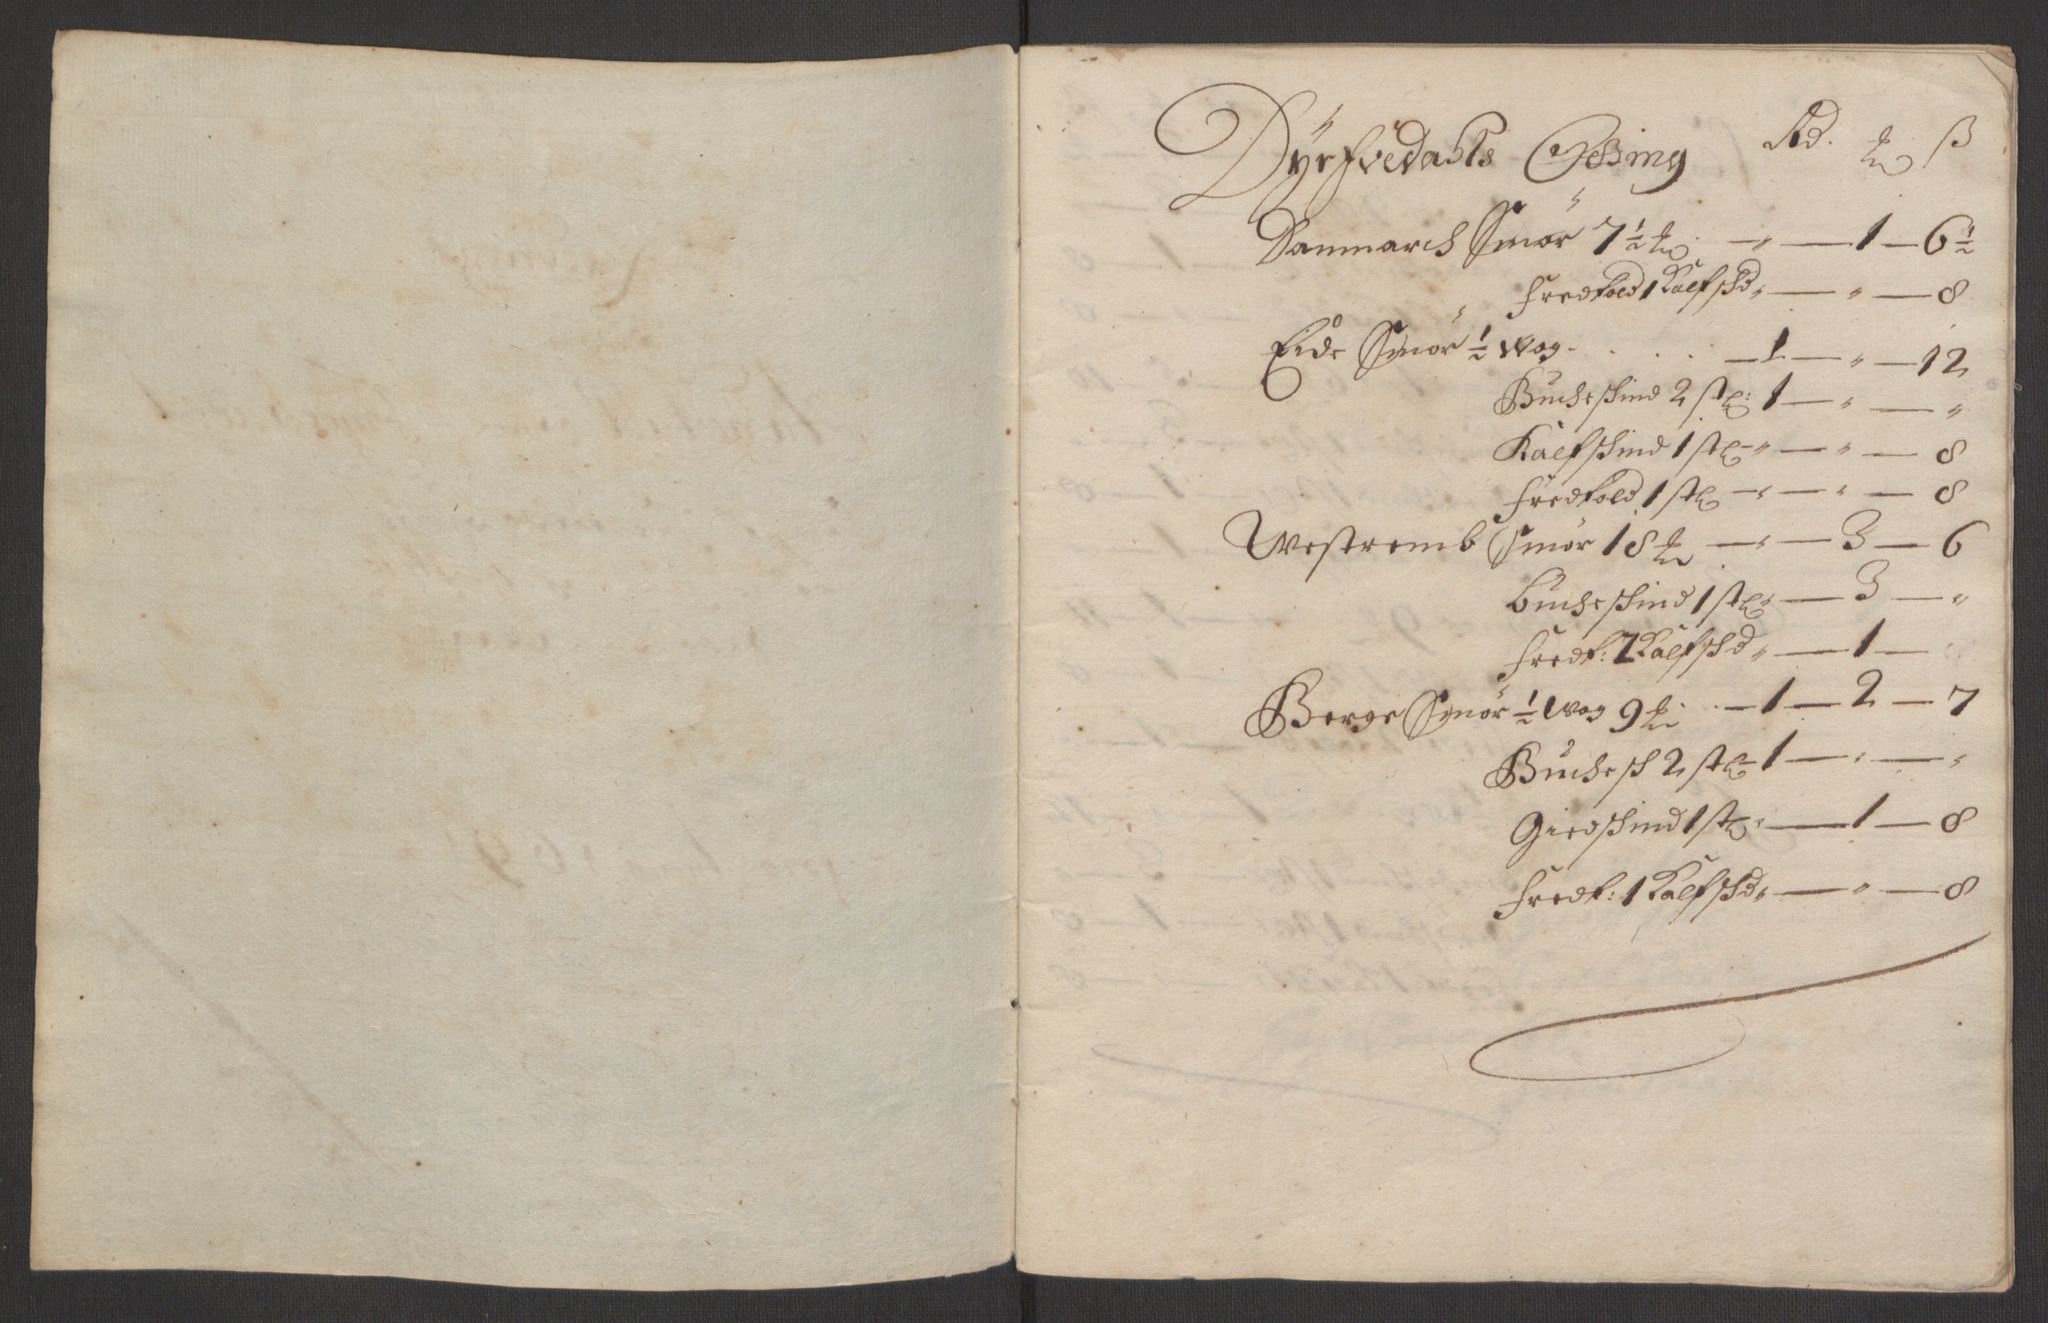 Dyrhvedahls Otting Rd. ℔ ß
Danmarch Smör 7½ ℔ — „ — 1 — 6½
Fredtold 1 Kalfskd „ — „ — 8
Eide Smör ½ Wog . . . . — 1 — „ — 12
Bucheskind 2 stkr: 1 — „ — „
Kalfskind 1 stk — „ — „ — 8
Fredtold 1 stk — „ — „ — 8
Westremb Smör 18 ℔ — „ — 3 — 6
Bucheskind 1 stk „ — 3 — „
Fredt: 2 Kalfskd „ — 1 —
Berge Smör ½ Wog 9 ℔ . — 1 — 2 — 7
Buchesk 2 stkr 1 — „ — „
Giedskind 1 stk „ — 1 — 8
Fredt: 1 Kalfskd „ — „ — 8